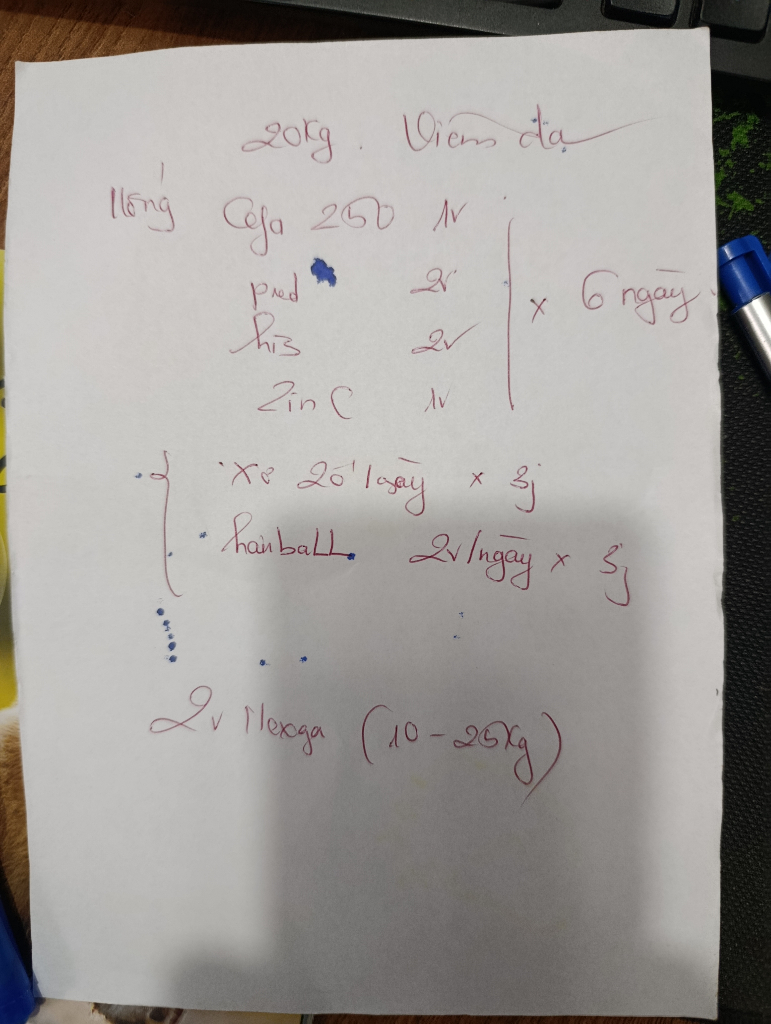 20kg. Viêm da
Uống Cefa 250 1v
pred 2v
his 2v
x 6 ngày.
Zin C 1v
2ô /ngày x 3j
hairball 2v/ngày x 3j
2v Nexga (10 - 25kg)